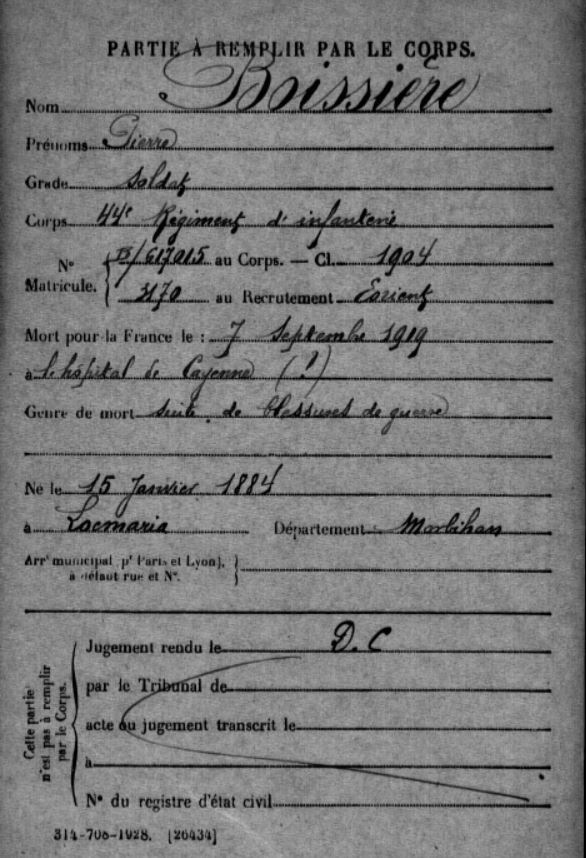 PARTIE À REMPLIR PAR LE CORPS.
Nom Boissière
Prénoms Pierre
Grade Soldat
Corps 44e Régiment d'infanterie
N° Matricule. { /617015 au Corps. — Cl. 1904
3170 au Recrutement Lorient
Mort pour la France le : 7 Septembre 1919
à l'hôpital de Cayenne (?)
Genre de mort suite de blessures de guerre
Né le 15 Janvier 1884
à Locmaria Département Morbihan
Arrt municipal (pr Paris et Lyon),
à défaut rue et N°. }
Cette partie n'est pas à remplir par le Corps. {
Jugement rendu le D.C
par le Tribunal de
acte ou jugement transcrit le
à
N° du registre d'état civil
314-708-1928. [26434]